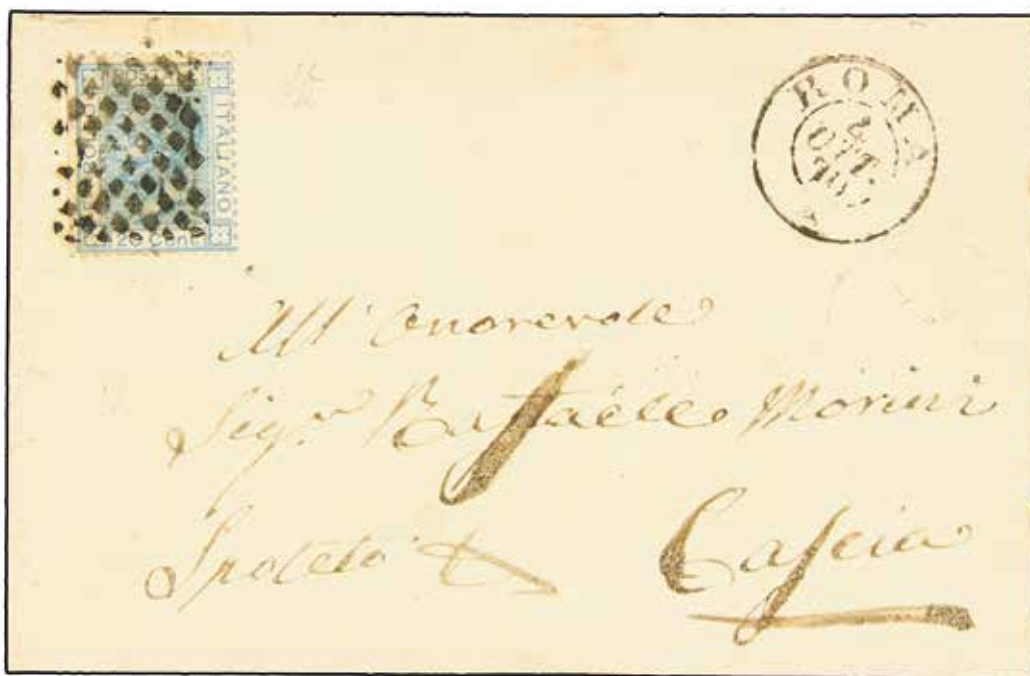 ITALIANO
20 Cent
ROMA
4
OTT.
70
All' Onorevole
Sig.r Raffaele Morini
Spoleto
Cascia